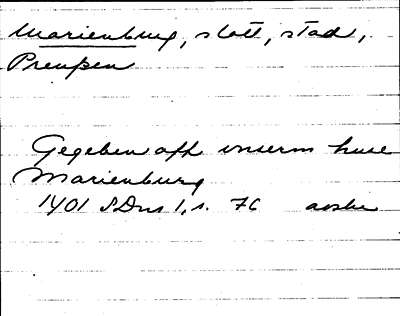 Marienburg, slott, stad,
Preuſsen
Gegeben off unserm huse
Marienburg
1401 SDns 1, s. 76